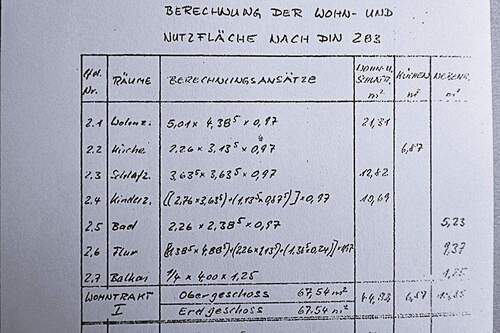 BERECHNUNG DER WOHN- UND
NUTZFLÄCHE NACH DIN 283
Lfd. Nr. RÄUME BERECHNUNGSANSÄTZE WOHN-U. SCHLAFR. m² KÜCHEN m² NEBENR. m²
2.1 Wohnz. 5,01 x 4,38⁵ x 0,97 21,31
2.2 Küche 2.26 x 3,13⁵ x 0,97 6,87
2.3 Schlafz. 3,63⁵ x 3,63⁵ x 0,97 12,82
2.4 Kinderz. x 0,97 10,69
2.5 Bad 2.26 x 2,38⁵ x 0,97 5,23
2.6 Flur 9,37
2.7 Balkon 1/4 x 4,00 x 1,25 1,25
WOHNTRAKT I Obergeschoss 67,54 m² 44,82 6,87 15,85
Erdgeschoss 67,54 m²